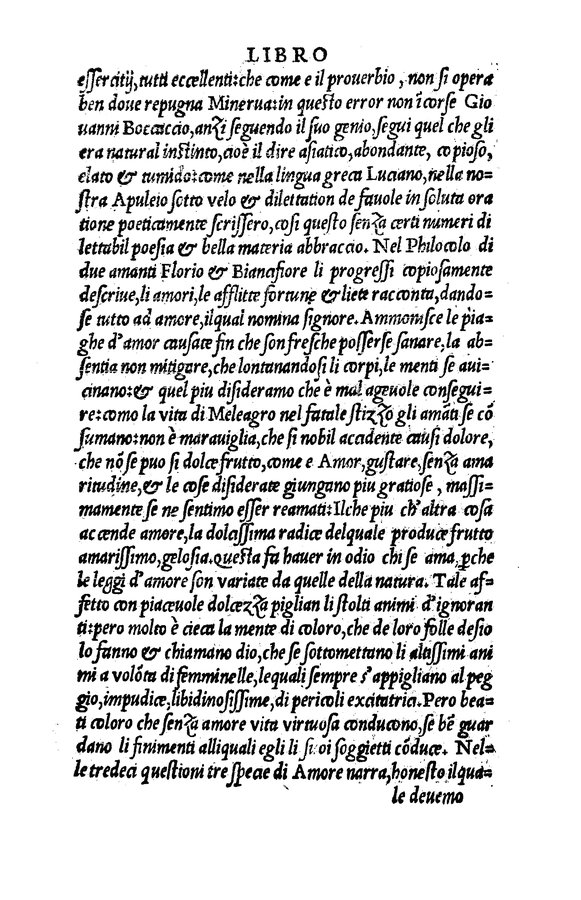 LIBRO
eſſercitij, tutti eccellenti: che come e il prouerbio, non ſi opera
ben doue repugna Minerua: in queſto error non ĩcorſe Gio
uanni Boccaccio, anzi ſeguendo il ſuo genio, ſegui quel che gli
era natural inſtinto, cioè il dire aſiatico, abondante, copioſo,
elato & tumido: come nella lingua greca Luciano, nella no=
ſtra Apuleio ſotto velo & dilettation de fauole in ſoluta ora
tione poeticamente ſcriſſero, coſi queſto ſenza certi numeri di
lettabil poeſia & bella materia abbraccio. Nel Philocolo di
due amanti Florio & Biancfiore li progreſſi copioſamente
deſcriue, li amori, le afflitte fortune & liete racconta, dando=
ſe tutto ad amore, ilqual nomina ſignore. Ammoniſce le pia=
ghe d'amor cauſate fin che ſon freſche poſſerſe ſanare, la ab=
ſentia non mitigare, che lontanandoſi li corpi, le menti ſe aui=
cinano: & quel piu diſideramo che è mal ageuole conſegui=
re: como la vita di Meleagro nel fatale ſtizzo gli amãti ſe cõ
ſumano: non è marauiglia, che ſi nobil accidente cauſi dolore,
che nõ ſe puo ſi dolce frutto, come e Amor, guſtare, ſenza ama
ritudine, & le coſe diſiderate giungano piu gratioſe, maſſi=
mamente ſe ne ſentimo eſſer reamati: Ilche piu ch'altra coſa
accende amore, la dolciſſima radice delquale produce frutto
amariſſimo, geloſia. Queſta fa hauer in odio chi ſe ama, ꝑche
le leggi d'amore ſon variate da quelle della natura. Tale af=
fetto con piaceuole dolcezza piglian li ſtolti animi d'ignoran
ti: pero molto è cieca la mente di coloro, che de loro folle deſio
lo fanno & chiamano dio, che ſe ſottomettano li altiſſimi ani
mi a volõta di femminelle, lequali ſempre s'appigliano al peg
gio, impudice, libidinoſiſſime, di pericoli excitatrici. Pero bea=
ti coloro che ſenza amore vita virtuoſa conducono, ſe bẽ guar
dano li finimenti alliquali egli li ſuoi ſoggietti cõduce. Nel=
le tredeci queſtioni tre ſpecie di Amore narra, honeſto ilqua=
le deuemo